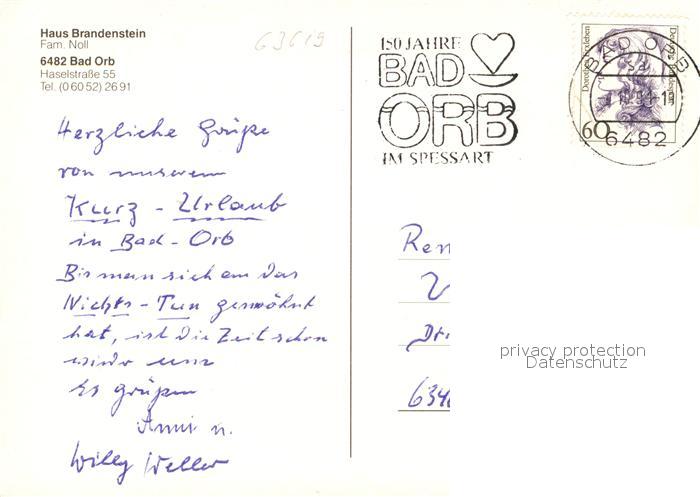 Haus Brandenstein
Fam. Noll
6482 Bad Orb
Haselstraße 55
Tel. (0 60 52) 26 91
63619
150 JAHRE
BAD
ORB
IM SPESSART
BAD ORB
6482
60
Herzliche Grüße
von unserem
Kurz - Urlaub
in Bad - Orb
Bis man sich an das
Nichts - Tun gewöhnt
hat, ist die Zeit schon
wieder um
Es grüßen
Anni u.
Willy Weller
Ren
Dr.
634
privacy protection
Datenschutz